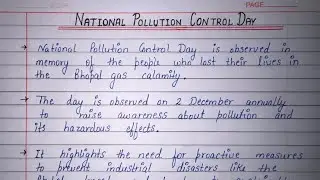 PAGE
NATIONAL POLLUTION CONTROL DAY
→ National Pollution Control Day is observed in
memory of the people who lost their lives in
the Bhopal gas calamity.
→ The day is observed on 2 December annually
to raise awareness about pollution and
its hazardous effects.
→ It highlights the need for proactive measures
to prevent industrial disasters like the